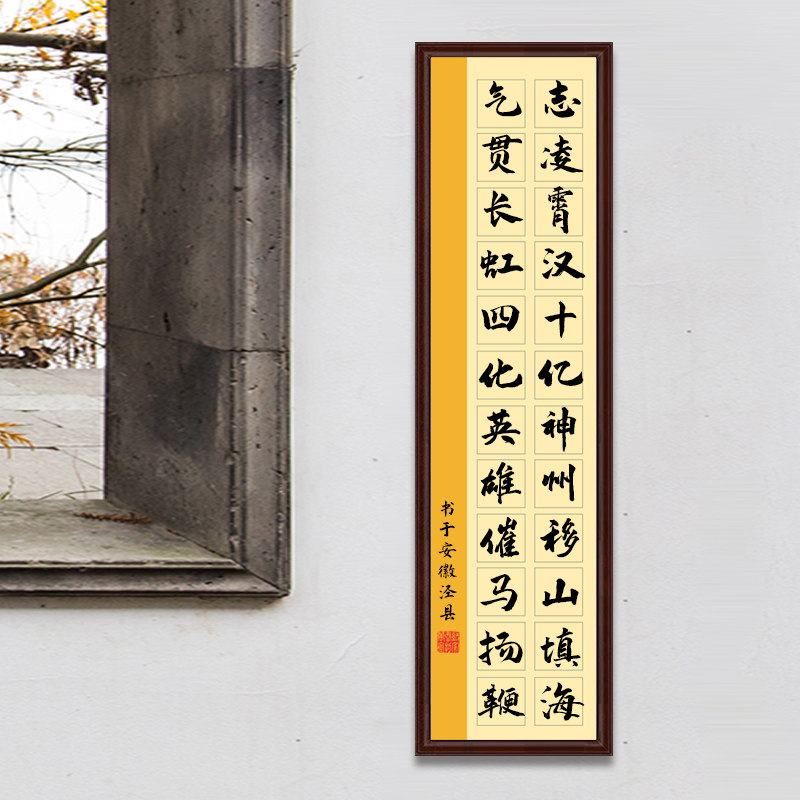 志凌霄汉十亿神州移山填海
气贯长虹四化英雄催马扬鞭
书于安徽泾县